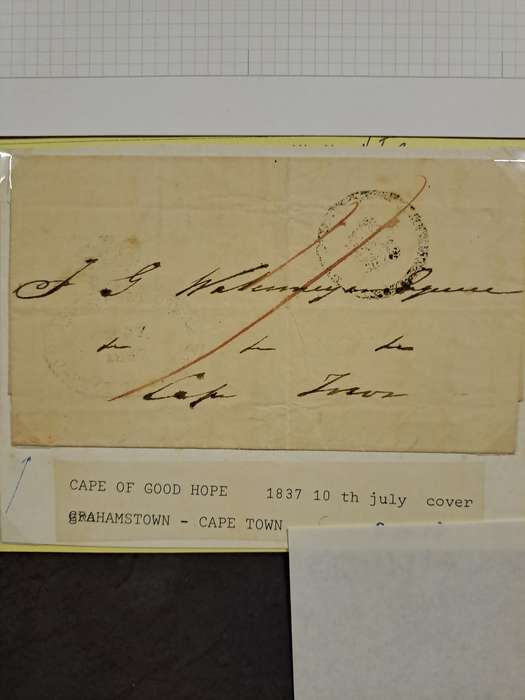 J G Watermeyer Esquire
&c &c &c
Cape Town
CAPE OF GOOD HOPE 1837 10 th july cover
GRAHAMSTOWN - CAPE TOWN